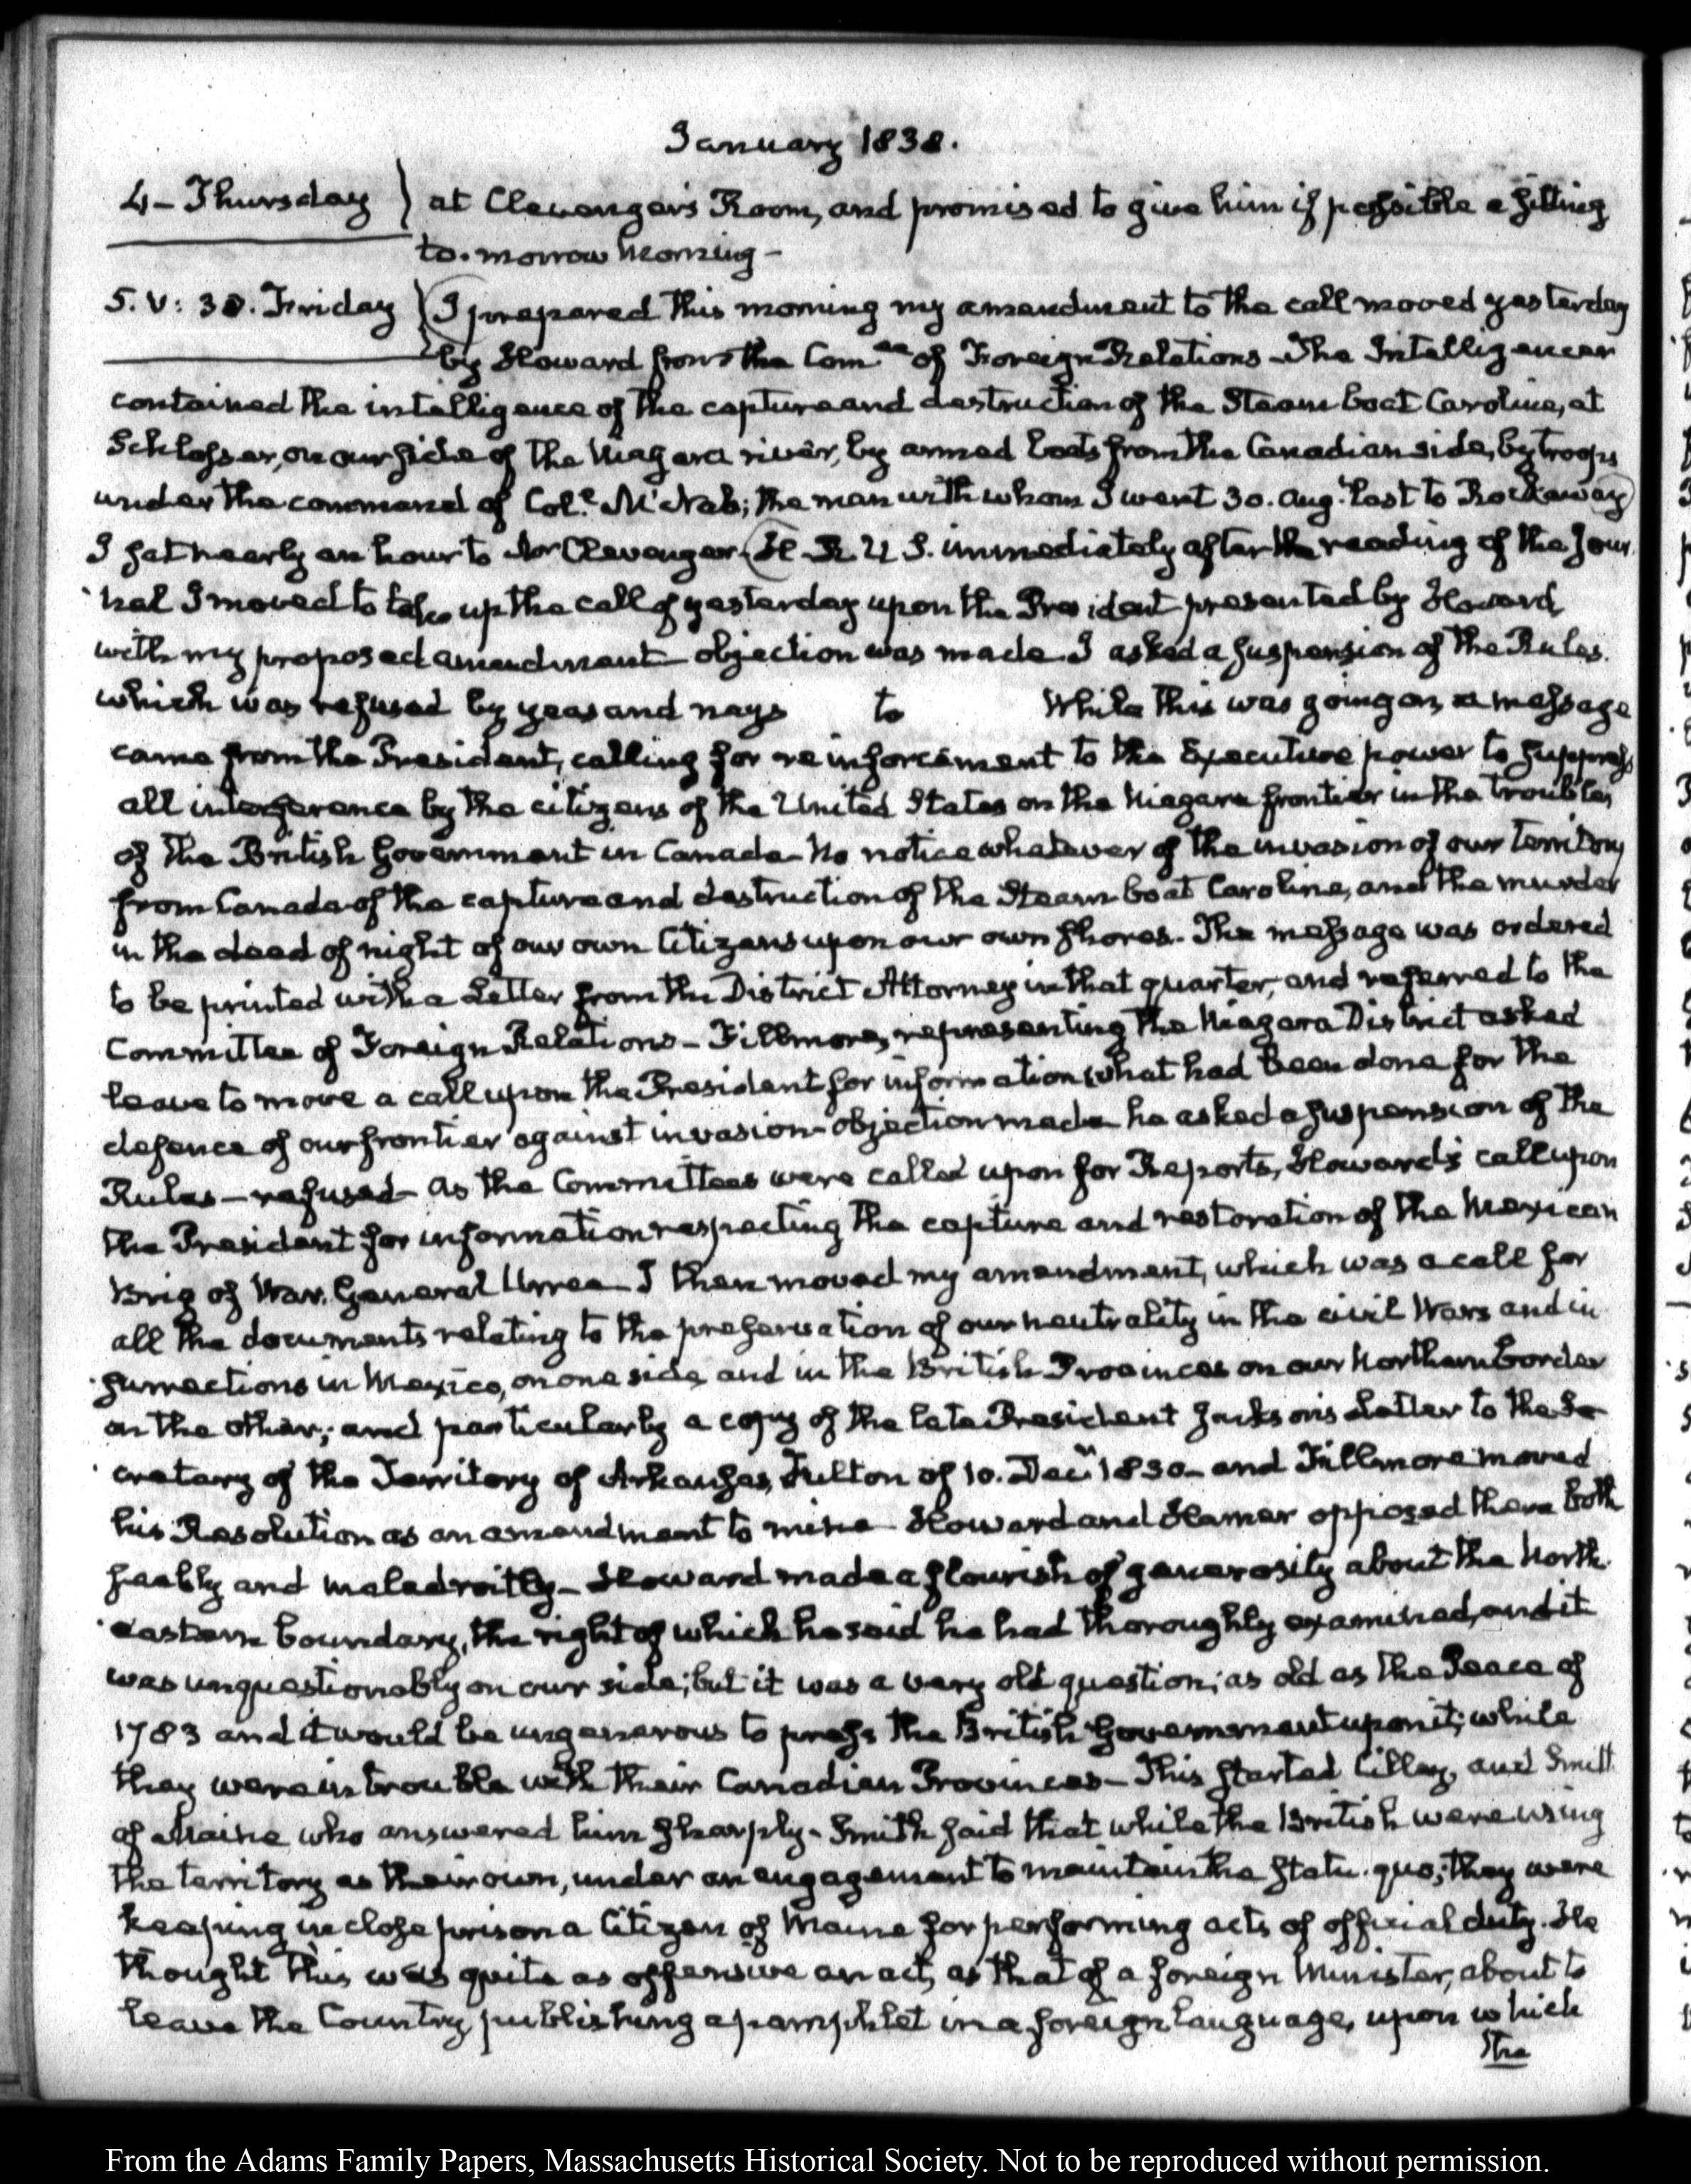 January 1838.
4– Thursday } at Clevenger's Room, and promised to give him if possible a sitting
to-morrow Morning –
5. V: 30. Friday { I prepared this morning my amendment to the call moved yesterday
by Howard from the Com.ee of Foreign Relations – The Intelligencer
contained the intelligence of the capture and destruction of the Steam boat Caroline, at
Schlosser, on our side of the Niagara river, by armed boats from the Canadian side, by troops
under the command of Col.l McNab; the man with whom I went 30. Aug.t last to Rockaway)
I sat nearly an hour to Mr Clevenger. (H. R. U S. immediately after the reading of the Jour-
-nal I moved to take up the call of yesterday upon the President presented by Howard
with my proposed amendment – objection was made I asked a suspension of the Rules.
which was refused by yeas and nays to While this was going on, a message
came from the President, calling for reinforcement to the Executive power to suppress
all interference by the citizens of the United States on the Niagara frontier in the troubles
of the British Government in Canada – No notice whatever of the invasion of our territory
from Canada of the capture and destruction of the Steam boat Caroline, and the murder
in the dead of night of our own Citizens upon our own shores. The message was ordered
to be printed with a Letter from the District Attorney in that quarter, and referred to the
Committee of Foreign Relations – Fillmore, representing the Niagara District asked
leave to move a call upon the President for information what had been done for the
defence of our frontier against invasion – objection made he asked a suspension of the
Rules – refused – As the Committees were called upon for Reports, Howard's call upon
the President for information respecting the capture and restoration of the Mexican
Brig of War, General Urrea – I then moved my amendment, which was a call for
all the documents relating to the preservation of our neutrality in the civil Wars and in-
-surrections in Mexico, on one side and in the British Provinces on our Northern border
on the other; and particularly a copy of the late President Jackson's Letter to the Se-
-cretary of the Territory of Arkansas, Fulton of 10. Decr 1830 – and Fillmore moved
his Resolution as an amendment to mine – Howard and Hamer opposed them both
feebly and maladroitly – Howard made a flourish of generosity about the North-
-eastern boundary, the right of which he said he had thoroughly examined, and it
was unquestionably on our side; but it was a very old question; as old as the Peace of
1783 and it would be ungenerous to press the British Government upon it; while
they were in trouble with their Canadian Provinces – This started Cilley, and Smith
of Maine who answered him sharply – Smith said that while the British were using
the territory as their own, under an engagement to maintain the statu-quo, they were
keeping in close prison a Citizen of Maine for performing acts of official duty. He
thought this was quite as offensive an act, as that of a foreign Minister, about to
leave the Country, publishing a pamphlet in a foreign language, upon which
the
From the Adams Family Papers, Massachusetts Historical Society. Not to be reproduced without permission.